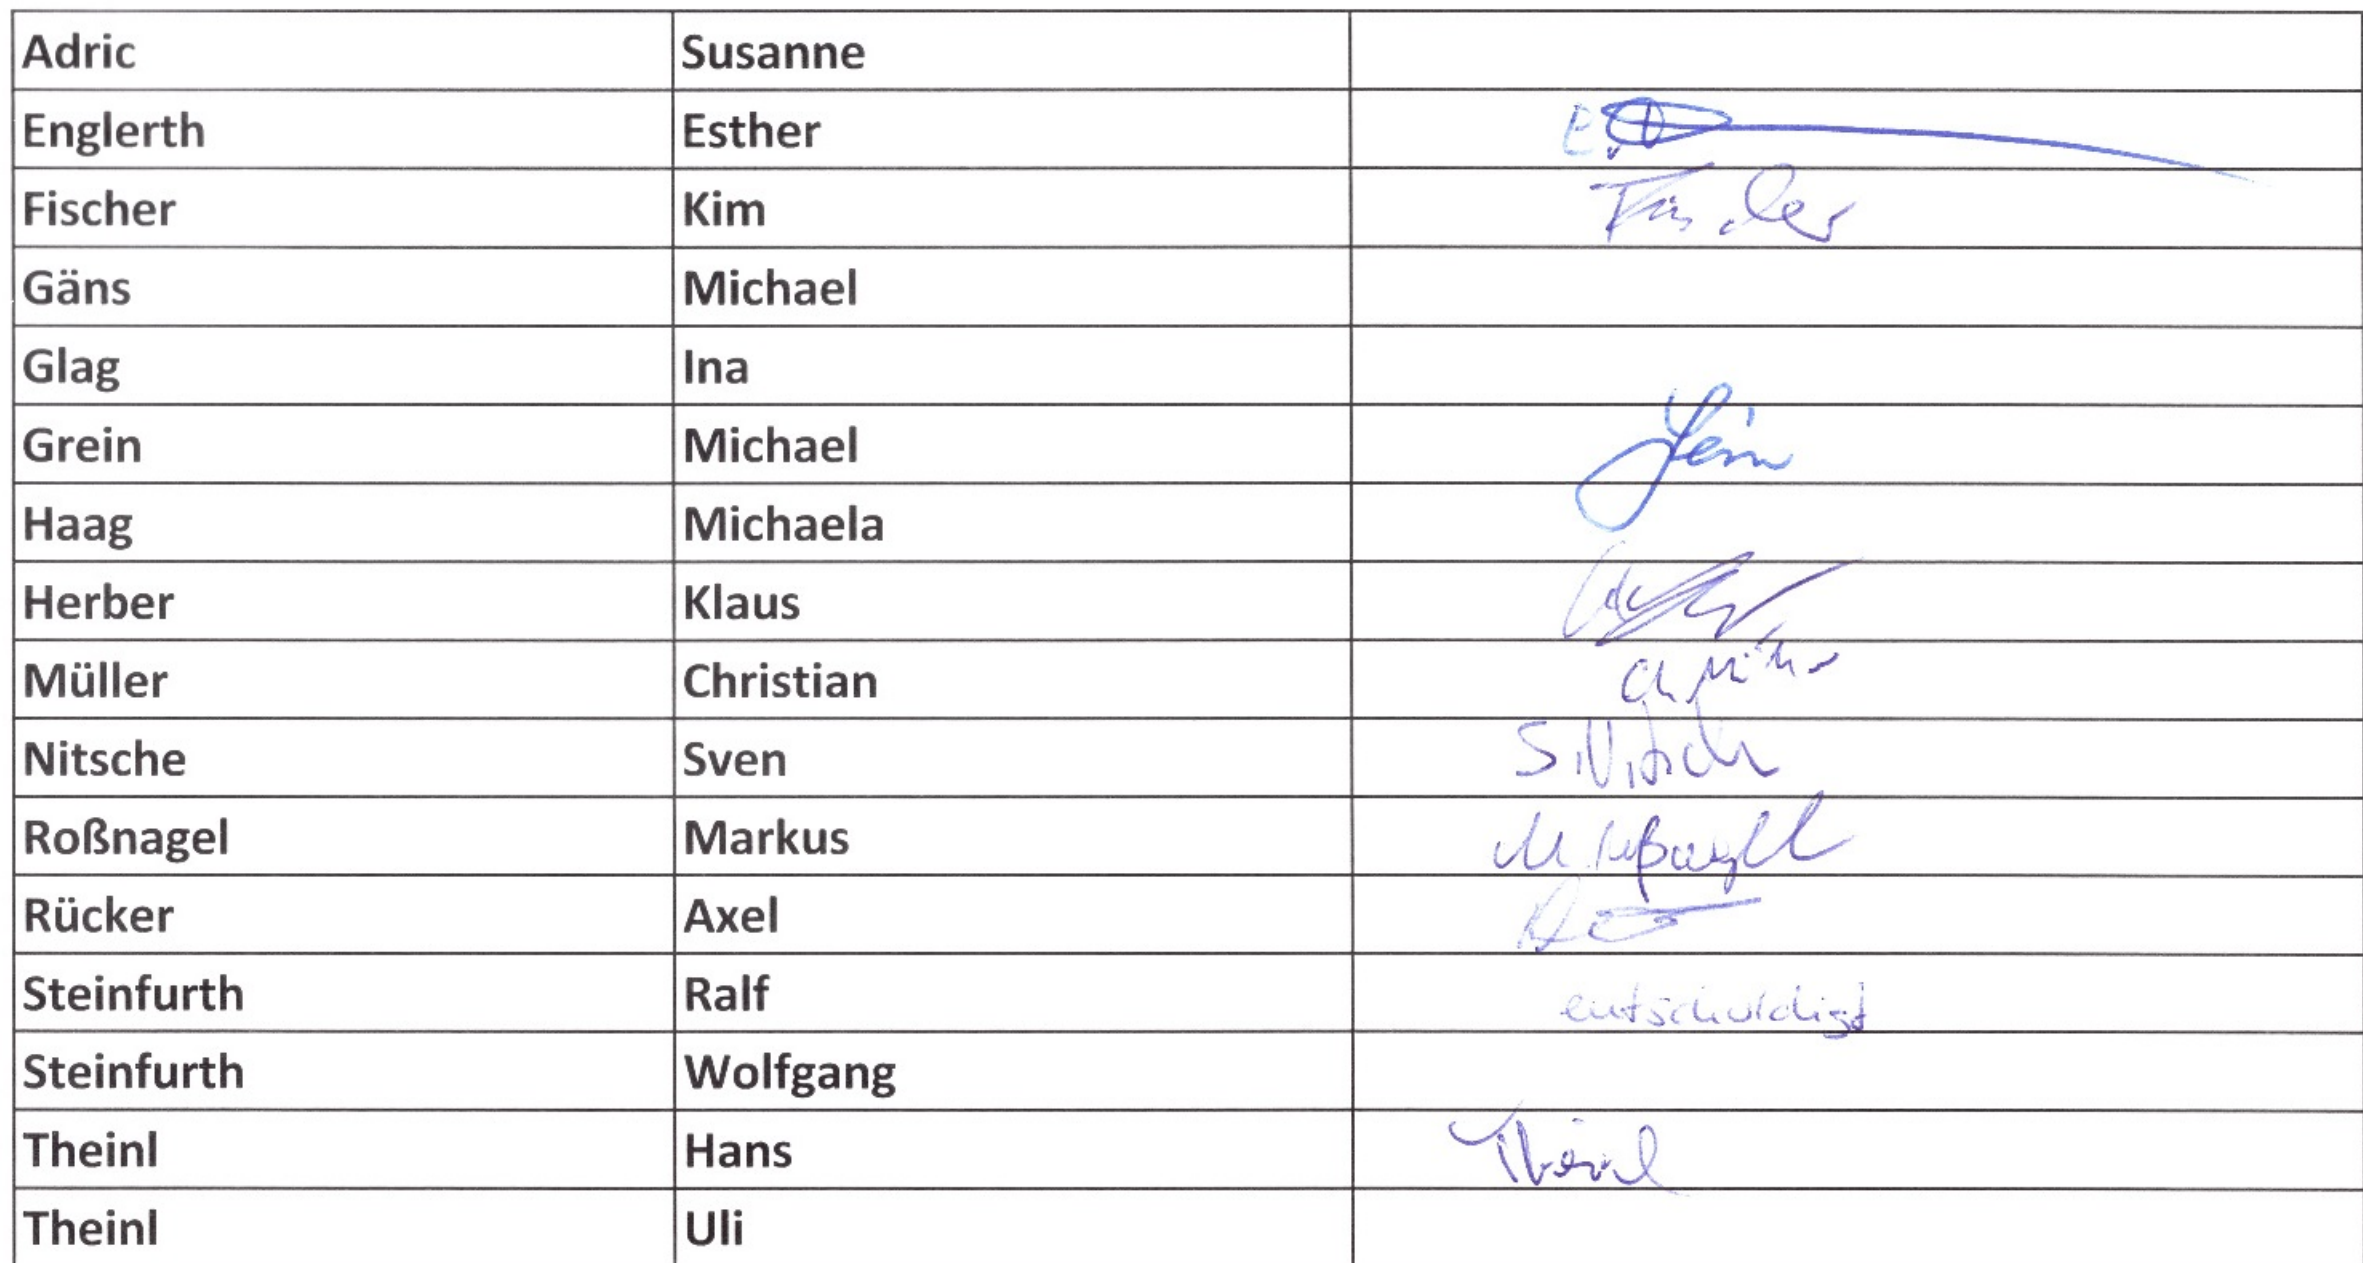 Adric Susanne
Englerth Esther
Fischer Kim Fischer
Gäns Michael
Glag Ina
Grein Michael Grein
Haag Michaela
Herber Klaus
Müller Christian Ch. Müller
Nitsche Sven S. Nitsche
Roßnagel Markus M. Roßnagel
Rücker Axel
Steinfurth Ralf entschuldigt
Steinfurth Wolfgang
Theinl Hans Theinl
Theinl Uli